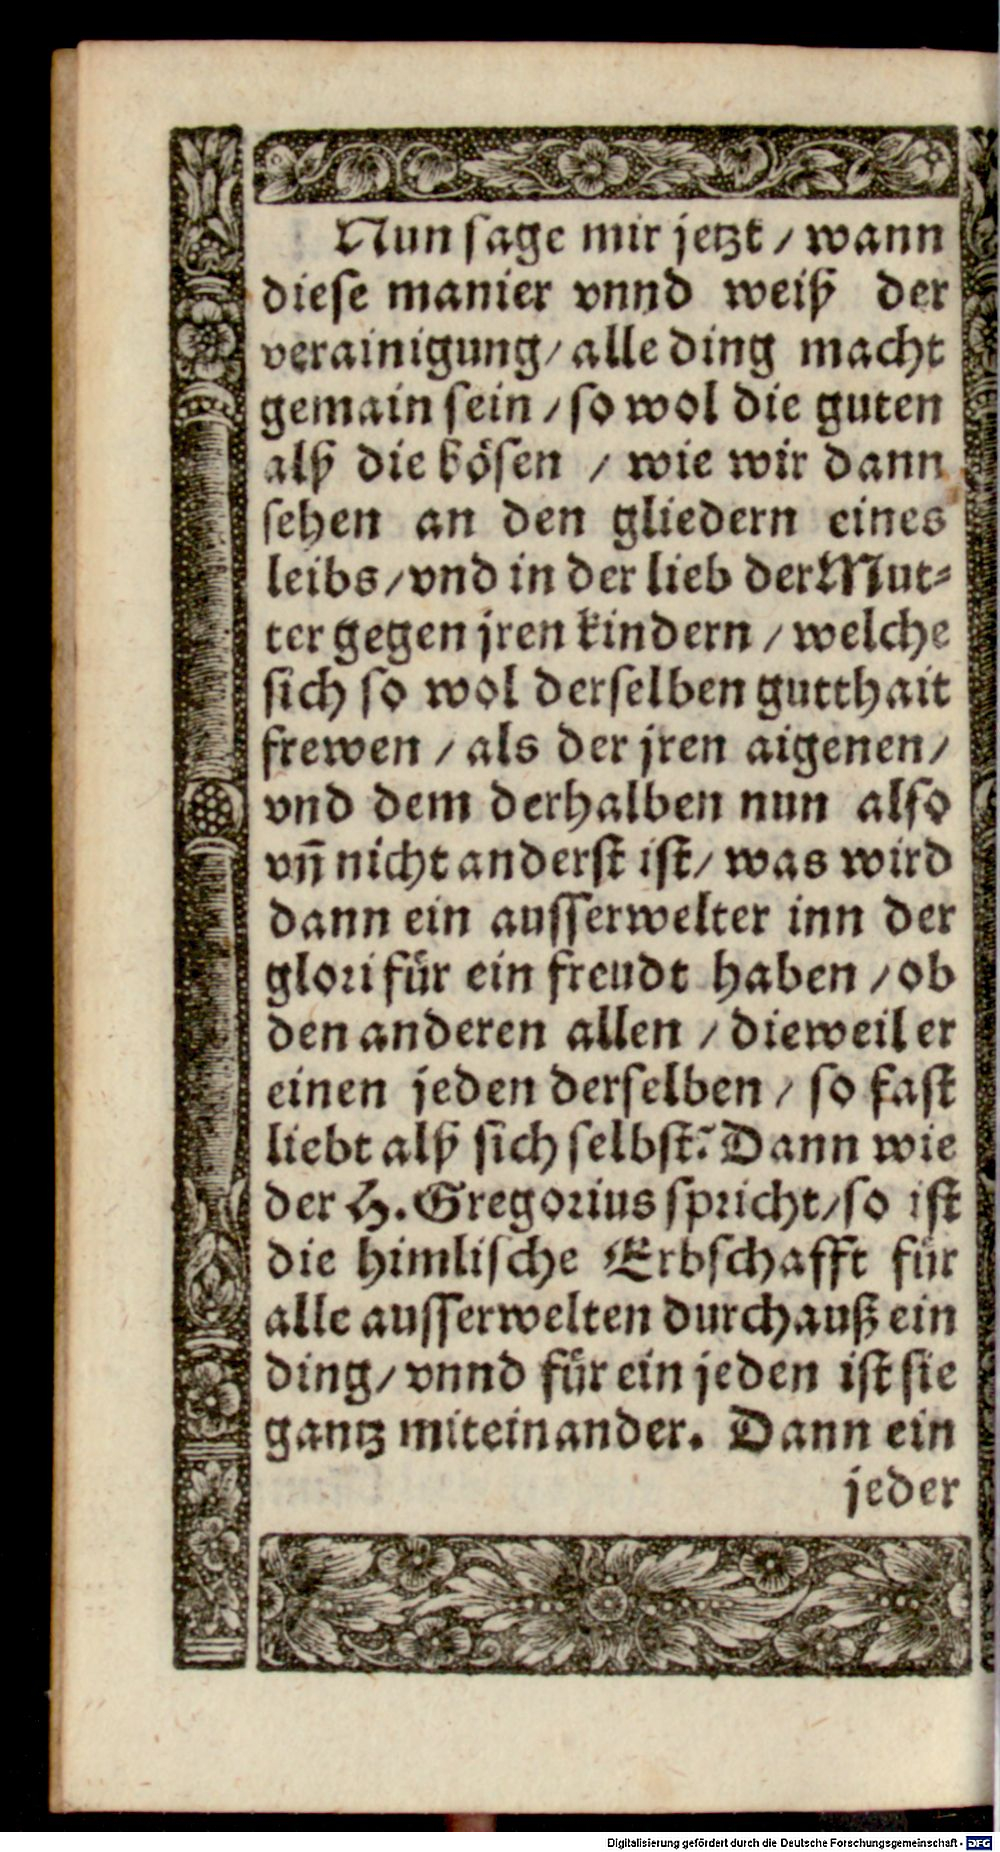 Nun sage mir jetzt / wann
diese manier vnnd weiß der
verainigung / alle ding macht
gemain sein / so wol die guten
alß die bösen / wie wir dann
sehen an den gliedern eines
leibs / vnd in der lieb der Mut⸗
ter gegen jren kindern / welche
sich so wol derselben gutthait
frewen / als der jren aigenen /
vnd dem derhalben nun also
vñ nicht anderst ist / was wird
dann ein ausserwelter inn der
glori für ein freudt haben / ob
den anderen allen / dieweil er
einen jeden derselben / so fast
liebt alß sich selbst? Dann wie
der H. Gregorius spricht / so ist
die himlische Erbschafft für
alle ausserwelten durchauß ein
ding / vnnd für ein jeden ist sie
gantz miteinander. Dann ein
jeder
Digitalisierung gefördert durch die Deutsche Forschungsgemeinschaft - DFG